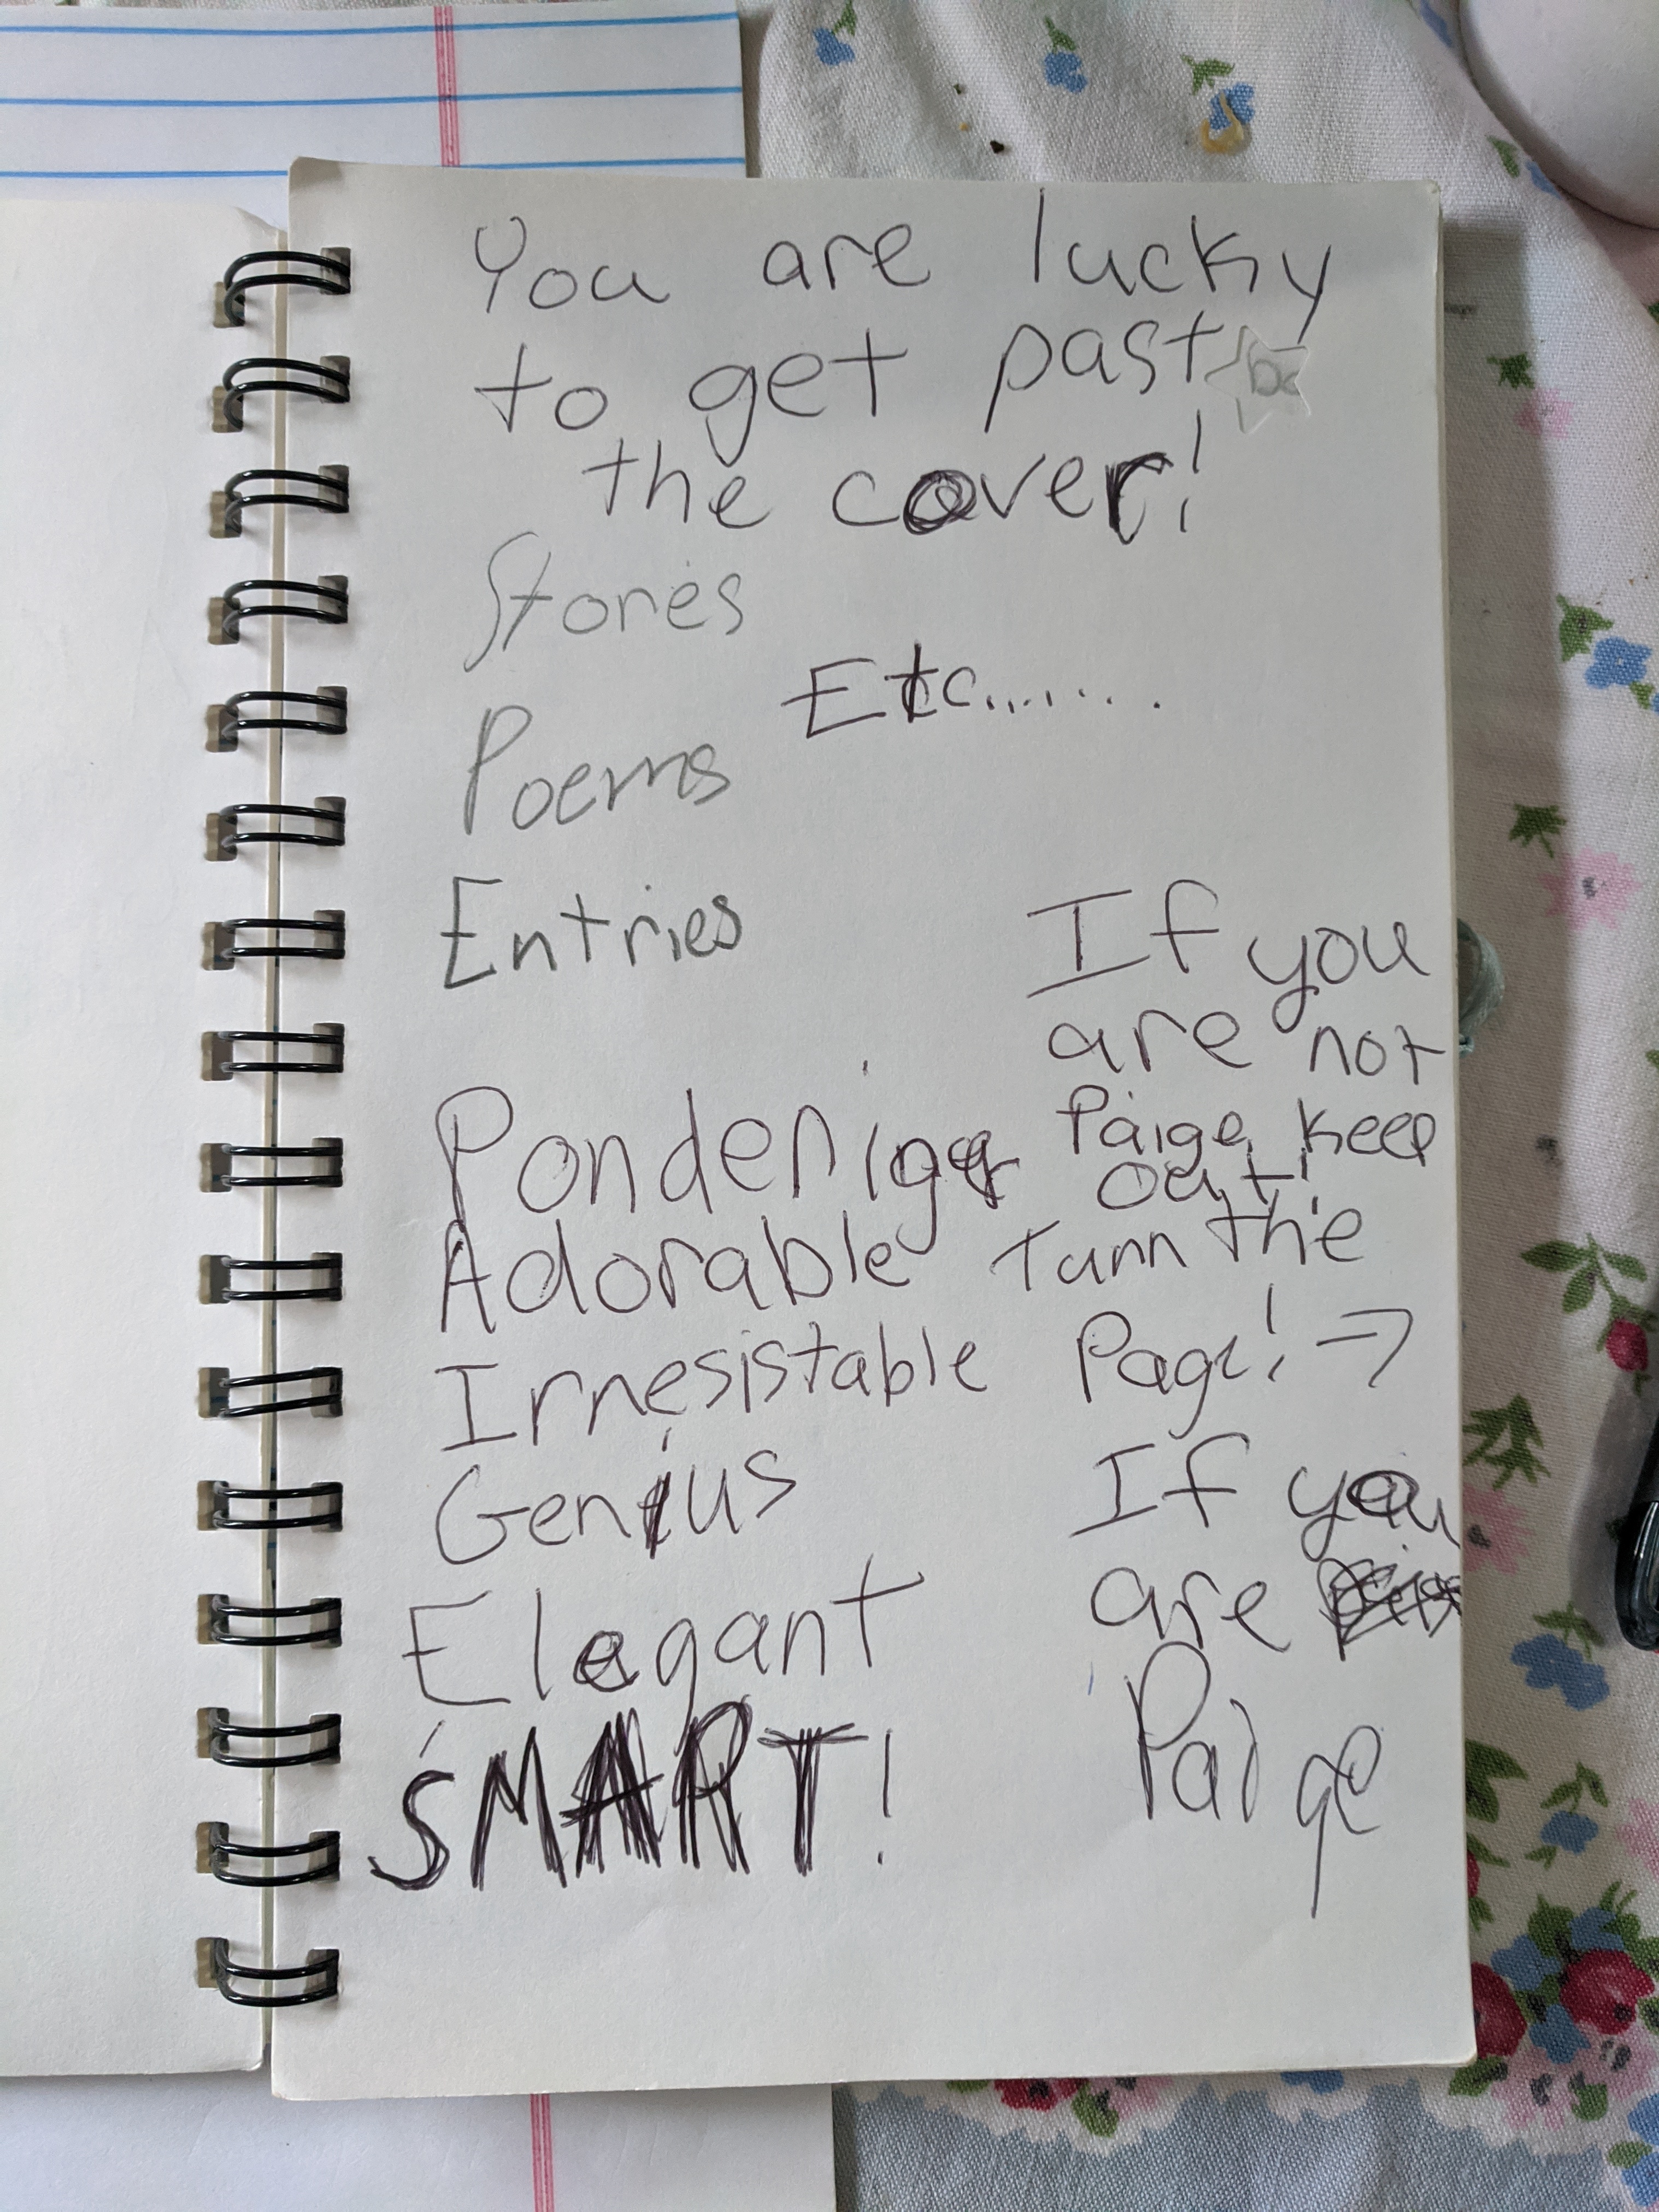 You are lucky
to get past
the cover!
Stores
Etc........
Poems
Entries
If you
are not
Paige, keep
out!
Pondering
Adorable
Irresistable
Genius
Elegant
SMART!
Turn the
Page! →
If you
are
Paige